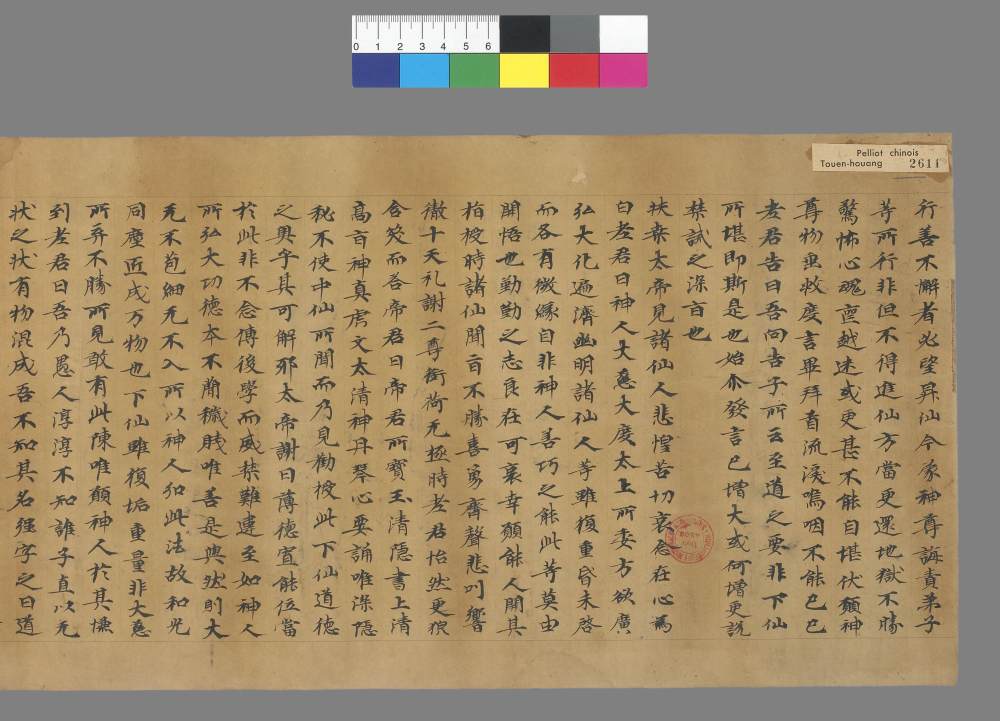 0 1 2 3 4 5 6
Pelliot chinois
Touen-houang 2611
行善不懈者必望昇仙今蒙神尊誨責弟子
等所行非但不得進仙方當更還地獄不勝
驚怖心魂亶越迷或更甚不能自堪伏願神
尊物垂救度言畢拜首流淚嗚咽不能已已
老君告曰吾向吉子所云至道之要非下仙
所堪即斯是也始亦發言已憎大或何憎更説
禁誡之深旨也
扶桒太帝見諸仙人悲惶苦切哀念在心爲
白老君曰神人大慈大度太上所委方欲廣
弘大化遍濟幽明諸仙人等雖復重昏未啓
而各有微緣自非神人善巧之能此等莫由
開悟也勤勤之志良在可哀幸願能人開其
指授時諸仙聞旨不勝喜勇齊聲悲叫響
徹十天礼謝二尊銜荷无極時老君怡然更
含笑而答帝君曰帝君所寶玉清隱書上清
高旨神真虎文太清神丹琴心要誦唯深隱
秘不使中仙所聞而乃見勸授此下仙道德
之奥乎其可解邪太帝謝曰薄德寘能位當
於此非不念傳後學而威禁難違至如神人
所弘大功德本不蘭穢賎唯善是與然則大
无不苞細无不入所以神人弘此法故和光
同塵匠成万物也下仙雖復垢重量非大慈
所弃不勝所見敢有此陳唯願神人於其憮
到老君曰吾乃愚人淳淳不知誰子直以无
狀之狀有物混成吾不知其名强字之曰道